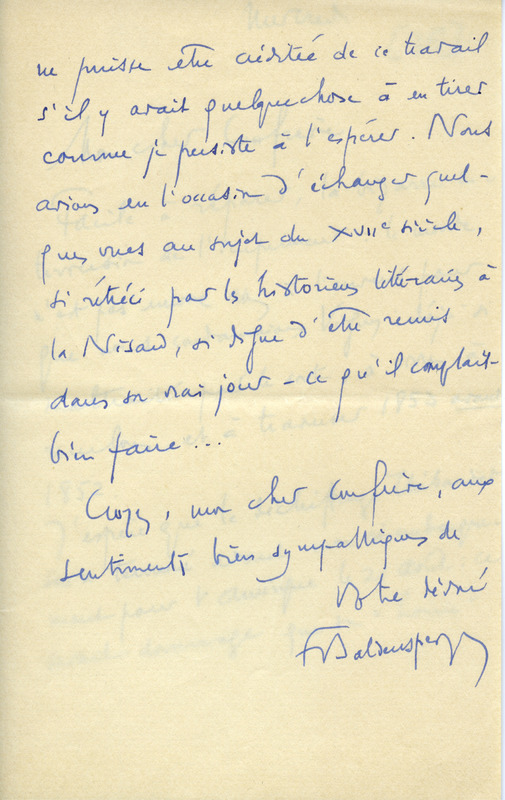 ne puisse être créditée de ce travail
s'il y avait quelque chose à en tirer
comme je persiste à l'espérer. Nous
avions eu l'occasion d'échanger quel-
ques vues au sujet du XVIIe siècle,
si rétréci par les historiens littéraires à
la Nisard, si digne d'être remis
dans son vrai jour - ce qu'il comptait
bien faire...
Croyez, mon cher Confrère, aux
sentiments bien sympathiques de
Votre dévoué
F Baldensperger